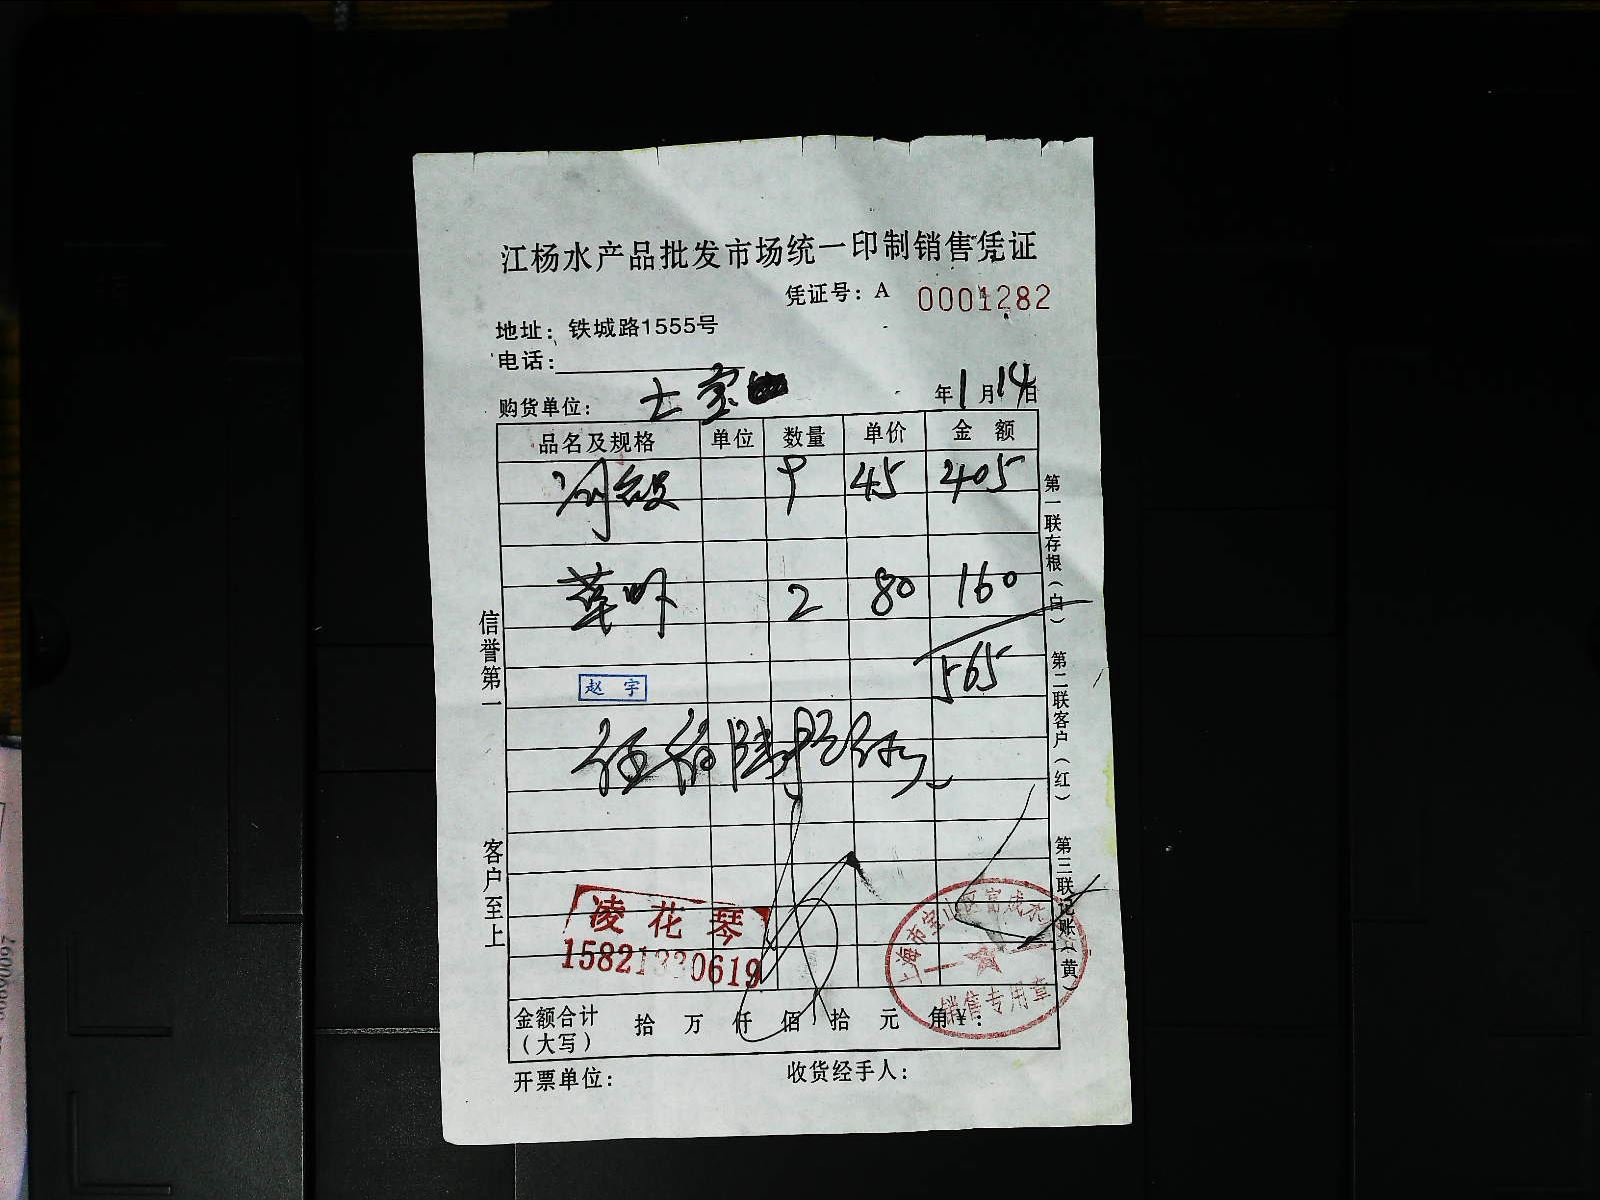 江杨水产品批发市场统一印制销售凭证
凭证号：A 0001282
地址：铁城路1555号
电话：
购货单位：
年1月14日
品名及规格 单位 数量 单价 金 额
9 45 405
草虾 2 80 160
565
赵 宇
伍佰陆拾伍元
凌花琴
15821330619
上海市宝山区富成水
销售专用章
金额合计（大写） 拾 万 仟 佰 拾 元 角 ¥：
开票单位： 收货经手人：
信誉第一
客户至上
第一联存根（白）
第二联客户（红）
第三联记账（黄）